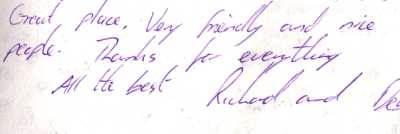 Great place. Very friendly and nice
people. Thanks for everything
All the best Richard and